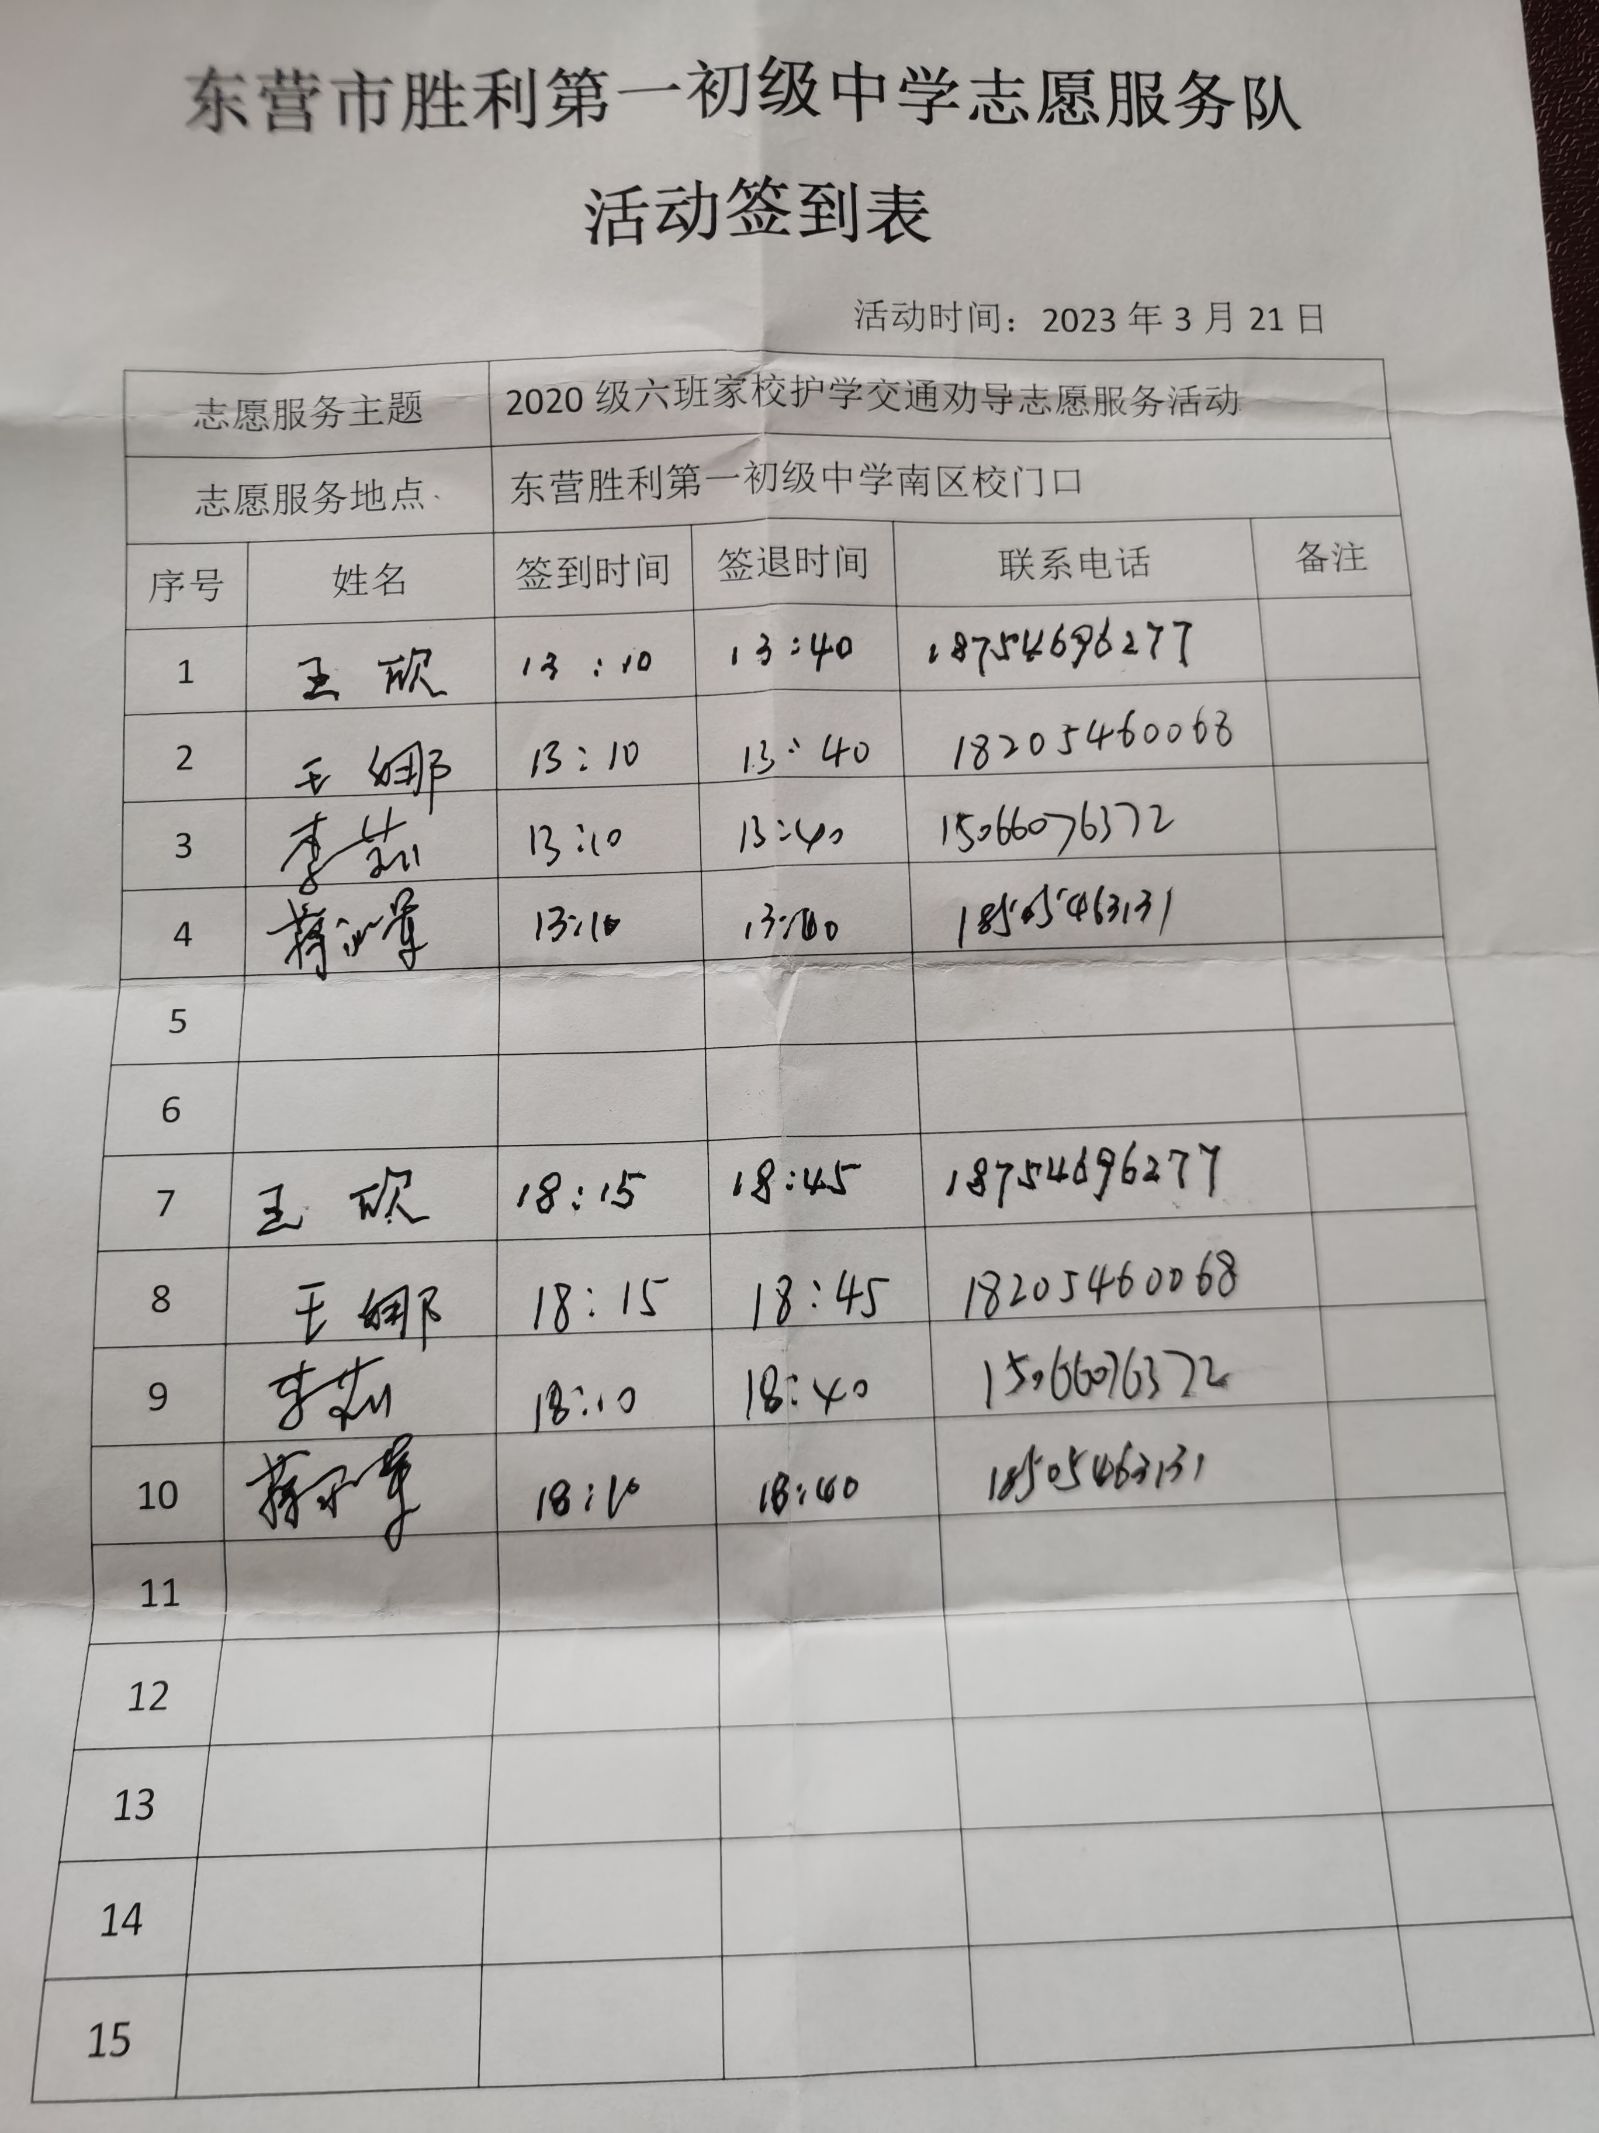 东营市胜利第一初级中学志愿服务队
活动签到表
活动时间：2023 年 3 月 21 日
志愿服务主题 2020 级六班家校护学交通劝导志愿服务活动
志愿服务地点 东营胜利第一初级中学南区校门口
序号 姓名 签到时间 签退时间 联系电话 备注
1 王欣 13:10 13:40 18754696277
2 王娜 13:10 13:40 18205460068
3 李茹 13:10 13:40 15066076372
4 蒋 13:10 13:40 18505463131
5
6
7 王欣 18:15 18:45 18754696277
8 王娜 18:15 18:45 18205460068
9 李茹 18:10 18:40 15066076372
10 蒋 18:10 18:40 18505463131
11
12
13
14
15